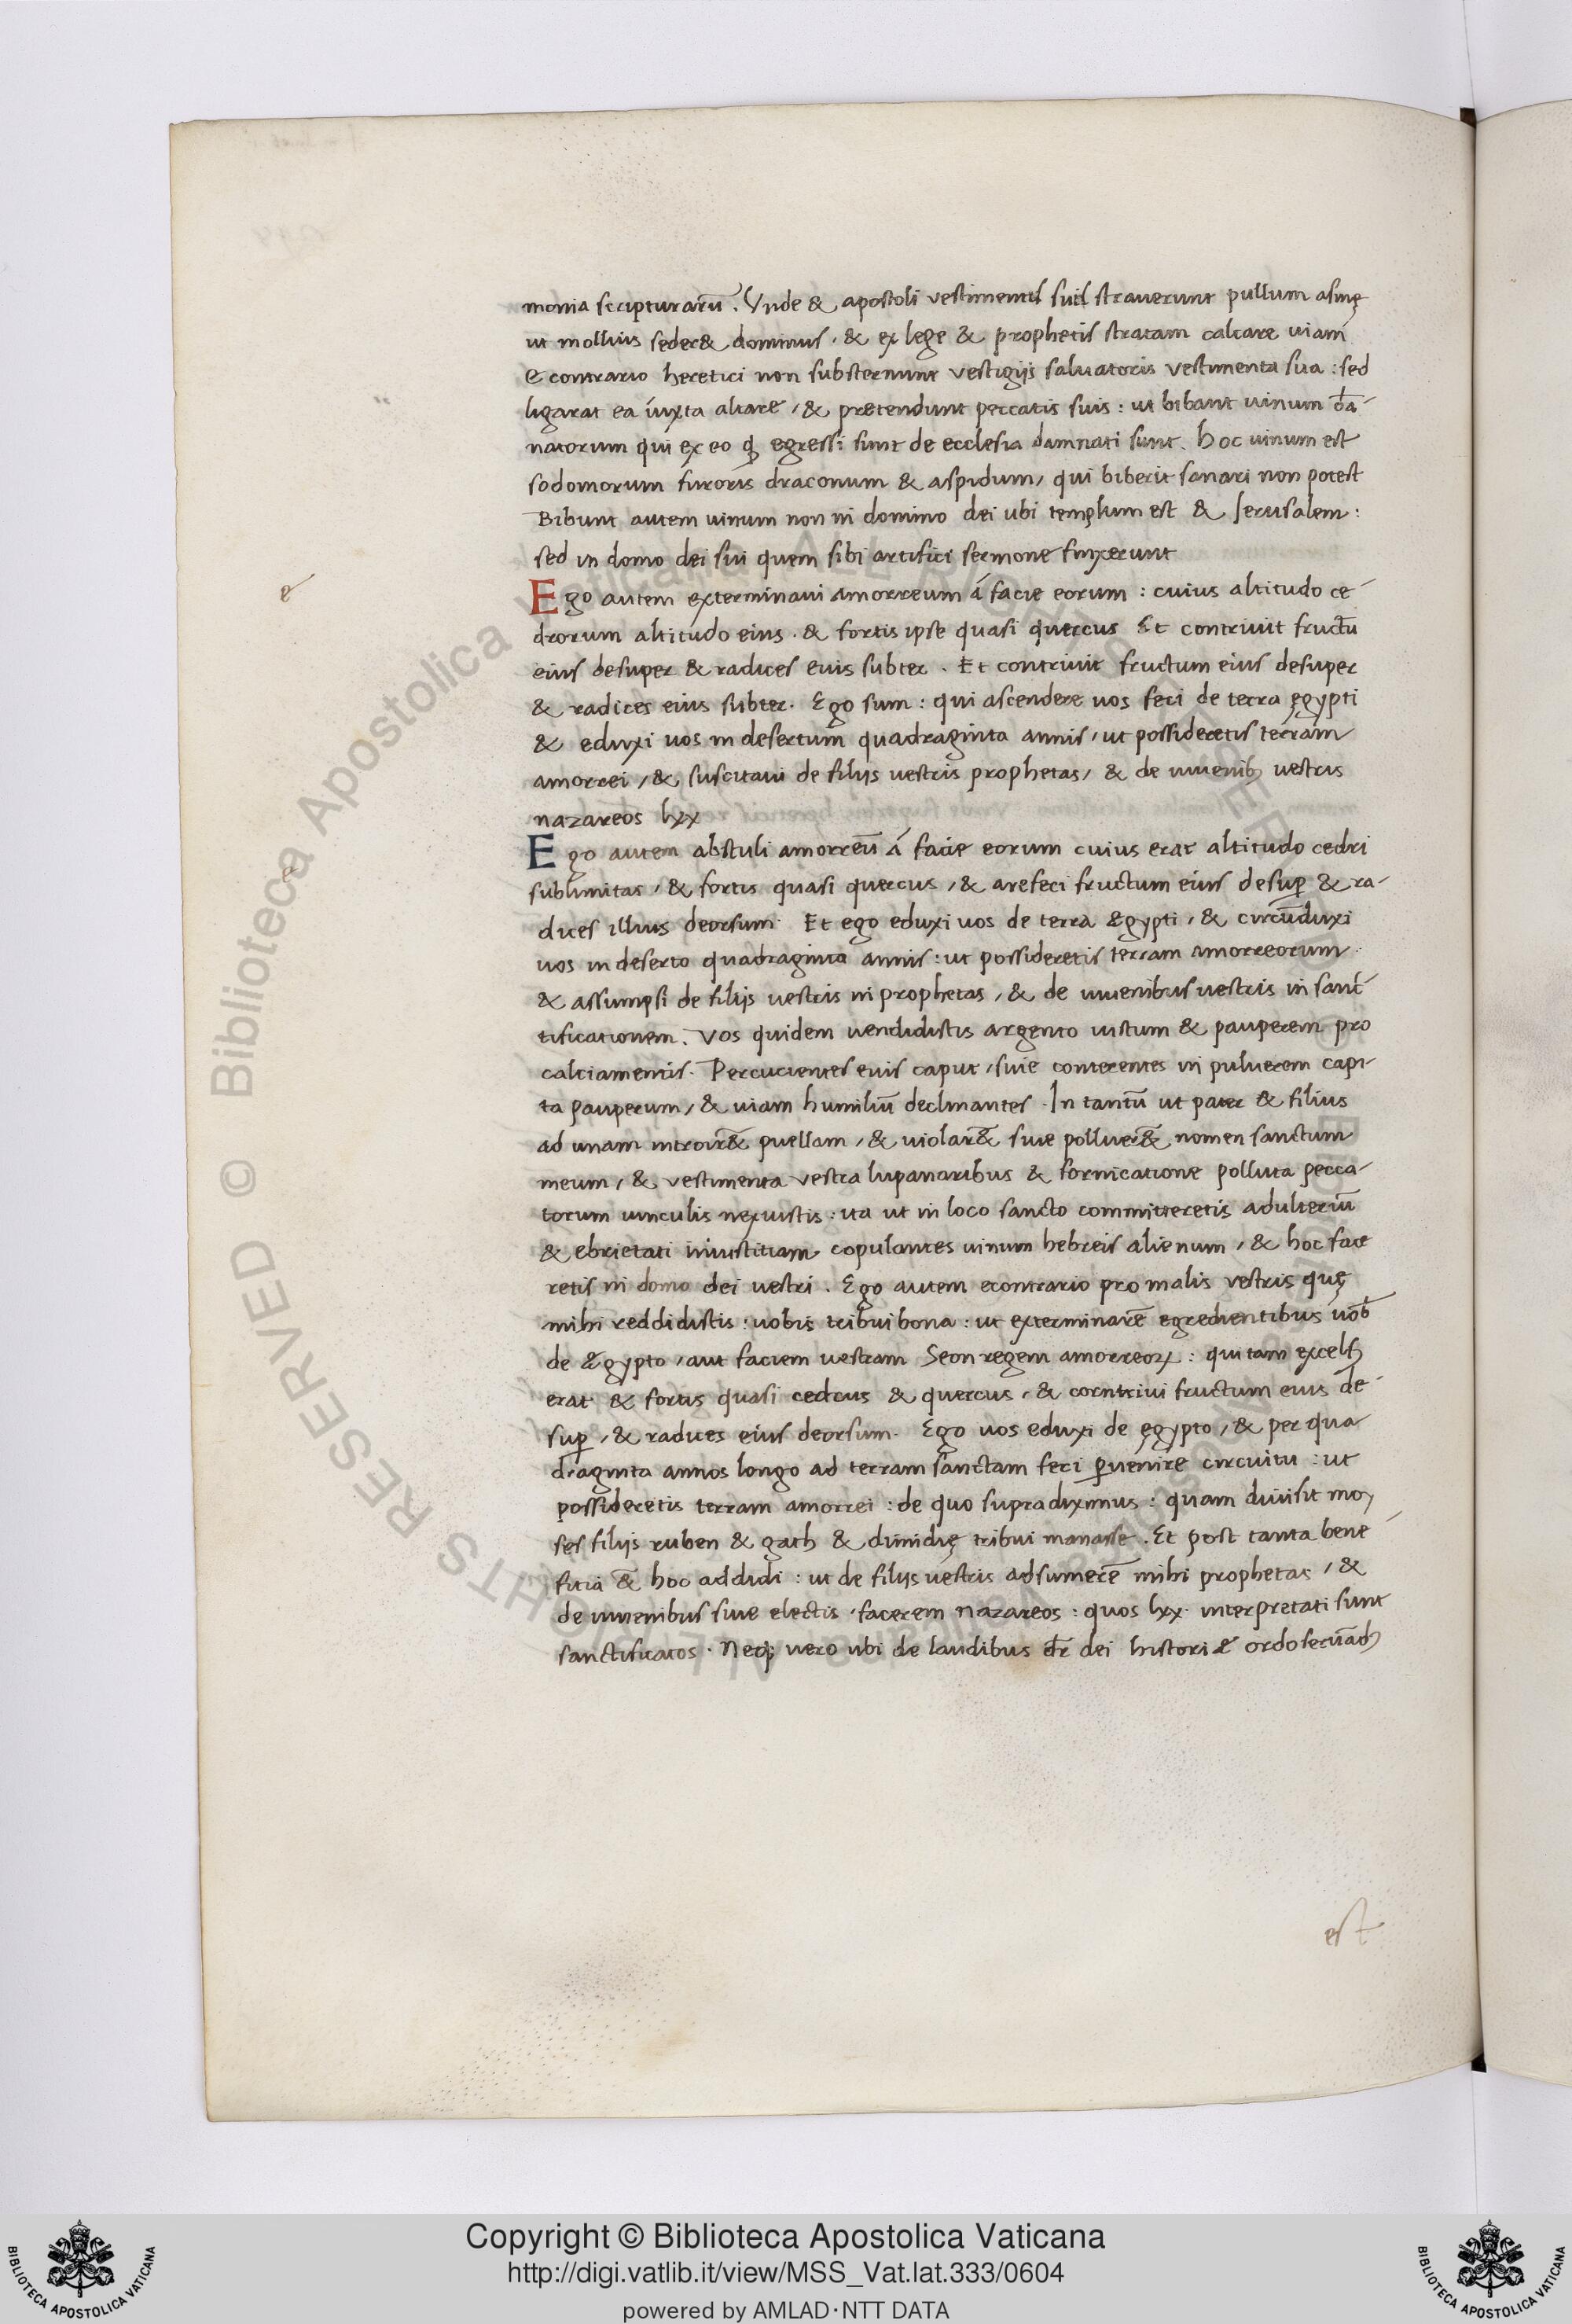 monia scripturarū. Vnde & apostoli vestimentis suis strauerunt pullum asinę
ut mollius seder& dominus. & ex lege & prophetis stratam calcare uiam
e contrario heretici non substernunt vestigijs saluatoris vestimenta sua : sed
ligarat ea iuxta altare, & pretendunt peccatis suis : ut bibant uinum da-
natorum qui ex eo ꝙ egressi sunt de ecclesia damnati sunt. hoc uinum est
sodomorum furoris draconum & aspidum, qui biberit sanari non potest
Bibunt autem uinum non in domino dei ubi templum est & Ierusalem :
sed in domo dei sui quem sibi artifici sermone finxerunt
e
Ego autem exterminaui amorreum á facie eorum : cuius altitudo ce-
drorum altitudo eius. & fortis ipse quasi quercus Et contriuit fructū
eius desuper & radices euis subter. Et contriuit fructum eius desuper
& radices eius subter. Ego sum : qui ascendere uos feci de terra ęgypti
& eduxi uos in desertum quadraginta annis, ut possideretis terram
amorrei, & suscitaui de filijs uestris prophetas, & de iuuenibꝫ uestris
nazareos lxx
Ego autem abstuli amorreū á facie eorum cuius erat altitudo cedri
sublimitas, & fortis quasi quercus, & arefeci fructum eius desuꝑ & ra-
dices illius deorsum. Et ego eduxi uos de terra ægypti, & circūduxi
uos in deserto quadraginta annis : ut possideretis terram amorreorum.
& assumpsi de filijs uestris in prophetas, & de iuuenibus uestris in sanc-
tificationem. Vos quidem uendidistis argento iustum & pauperem pro
calciamentis. Percucientes euis caput, siue conterentes in puluerem capi-
ta pauperum, & uiam humiliū declinantes. In tantū ut pater & filius
ad unam introir& puellam, & uiolar& siue polluer& nomen sanctum
meum, & vestimenta vestra lupanaribus & fornicatione polluta pecca-
torum uinculis nexuistis : ita ut in loco sancto committeretis adulteriū
& ebrietati iniustitiam copulantes uinum hebreis alienum, & hoc face
retis in domo dei uestri. Ego autem econtrario pro malis vestris quę
mihi reddidistis : uobis tribui bona : ut exterminarē egredientibus uob̄
de ægypto, aut faciem uestram Seon regem amorreoꝝ : qui tam excelsꝫ
erat & fortis quasi cedrus & quercus, & corntriui fructum euis de-
suꝑ, & radices eius deorsum. Ego uos eduxi de ęgypto, & per qua
draginta annos longo ad terram sanctam feci ꝑuenire circuitu : ut
possideretis terram amorrei : de quo supra diximus : quam diuisit moy
ses filijs ruben & gath & dimidię tribui manasse. Et post tanta bene-
ficia & hoc addidi : ut de filijs uestris adsumerē mihi prophetas, &
de iuuenibus siue electis, facerem nazareos : quos lxx. interpretati sunt
sanctificatos. Neqꝫ uero ubi de laudibus dr̄ dei historiæ ordo seruādꝫ
est
Copyright © Biblioteca Apostolica Vaticana
http://digi.vatlib.it/view/MSS_Vat.lat.333/0604
powered by AMLAD·NTT DATA